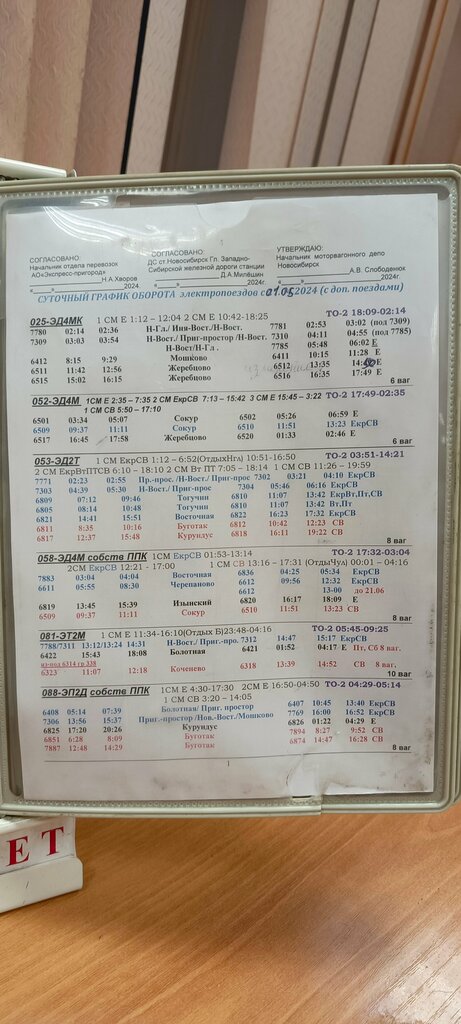 СОГЛАСОВАНО:
Начальник отдела перевозок
АО«Экспресс-пригород»
Н.А.Хворов
2024г.
СОГЛАСОВАНО:
ДС ст.Новосибирск Гл. Западно-
Сибирской железной дороги станции
Д.А.Милёшин
2024г.
УТВЕРЖДАЮ:
Начальник моторвагонного депо
Новосибирск
А.В. Слободенюк
2024г.
СУТОЧНЫЙ ГРАФИК ОБОРОТА электропоездов с 01.05.2024 (с доп. поездами)
025-ЭД4МК 1 СМ Е 1:12 – 12:04 2 СМ Е 10:42-18:25 ТО-2 18:09-02:14
7780 02:14 02:36 Н-Гл./ Иня-Вост./Н-Вост. 7781 02:53 03:02 (под 7309)
7309 03:03 03:54 Н-Вост./ Приг-простор /Н-Вост. 7310 04:11 04:55 (под 7785)
Н-Вост/Н-Гл. 7785 05:48 06:02 Е
6412 8:15 9:29 Мошково 6411 10:15 11:28 Е
6511 11:42 12:56 Жеребцово 6512 13:35 Е
6515 15:02 16:15 Жеребцово 6516 16:35 17:49 Е
6 ваг
052-ЭД4М 1СМ Е 2:35 – 7:35 2 СМ ЕкрСВ 7:13 – 15:42 3 СМ Е 15:45 – 3:22 ТО-2 17:49-02:35
1 СМ СВ 5:50 – 17:10
6501 03:34 05:07 Сокур 6502 05:26 06:59 Е
6509 09:37 11:11 Сокур 6510 11:51 13:23 ЕкрСВ
6517 16:45 17:58 Жеребцово 6520 01:33 02:46 Е
6 ваг
053-ЭД2Т 1 СМ ЕкрСВ 1:12 – 6:52(ОтдыхНгл) 10:51-16:50 ТО-2 03:51-14:21
2 СМ ЕкрВтПТСВ 6:10 – 18:10 2 СМ Вт ПТ 7:05 – 18:14 1 СМ СВ 11:26 – 19:59
7771 02:23 02:55 Пр.-прос./Н-Вост./ Приг-прос 7302 03:21 04:10 ЕкрСВ
7303 04:39 05:30 Н-Вост./ Приг-прос 7304 05:46 06:16 ЕкрСВ
6809 07:12 09:46 Тогучин 6810 11:07 13:42 ЕкрВт,Пт,СВ
6805 08:14 10:48 Тогучин 6810 11:07 13:42 Вт,Пт
6821 14:41 15:51 Восточная 6822 16:23 17:32 ЕкрСВ
6811 8:35 10:16 Буготак 6812 10:42 12:23 СВ
6817 12:37 15:48 Курундус 6818 16:11 19:22 СВ
8 ваг
058-ЭД4М собств ППК 1СМ ЕкрСВ 01:53-13:14 ТО-2 17:32-03:04
2СМ ЕкрСВ 12:21 - 17:00 1 СМ СВ 13:16 – 17:31 (ОтдыЧул) 00:01 – 04:16
7883 03:04 04:04 Восточная 6836 04:25 05:34 ЕкрСВ
6611 05:55 08:30 Черепаново 6612 09:56 12:32 ЕкрСВ
6612 13:00 до 21.06
6819 13:45 15:39 Изынский 6820 16:17 18:09 Е
6509 09:37 11:11 Сокур 6510 11:51 13:23 СВ
8 ваг
081-ЭТ2М 1 СМ Е 11:34-16:10(Отдых Б)23:48-04:16 ТО-2 05:45-09:25
7788/7311 13:12/13:24 14:31 Н-Вост./ Приг-про. 7312 14:47 15:17 ЕкрСВ
6422 15:43 18:08 Болотная 6421 01:52 04:17 Е Пт, Сб 8 ваг.
из-под 6314 гр 338
6323 11:07 12:18 Коченево 6318 13:39 14:52 СВ 8 ваг,
10 ваг
088-ЭП2Д собств ППК 1СМ Е 4:30-17:30 2СМ Е 16:50-04:50 ТО-2 04:29-05:14
1 СМ СВ 3:20 – 14:05
6408 05:14 07:39 Болотная/ Приг. простор 6407 10:45 13:40 ЕкрСВ
7306 13:56 15:37 Приг.-простор /Нов.-Вост./Мошково 7769 16:00 16:52 ЕкрСВ
6825 17:20 20:26 Курундус 6826 01:22 04:29 Е
6851 6:28 8:09 Буготак 7894 8:27 9:52 СВ
7887 12:48 14:29 Буготак 6874 14:47 16:28 СВ
8 ваг
1
ЕТ